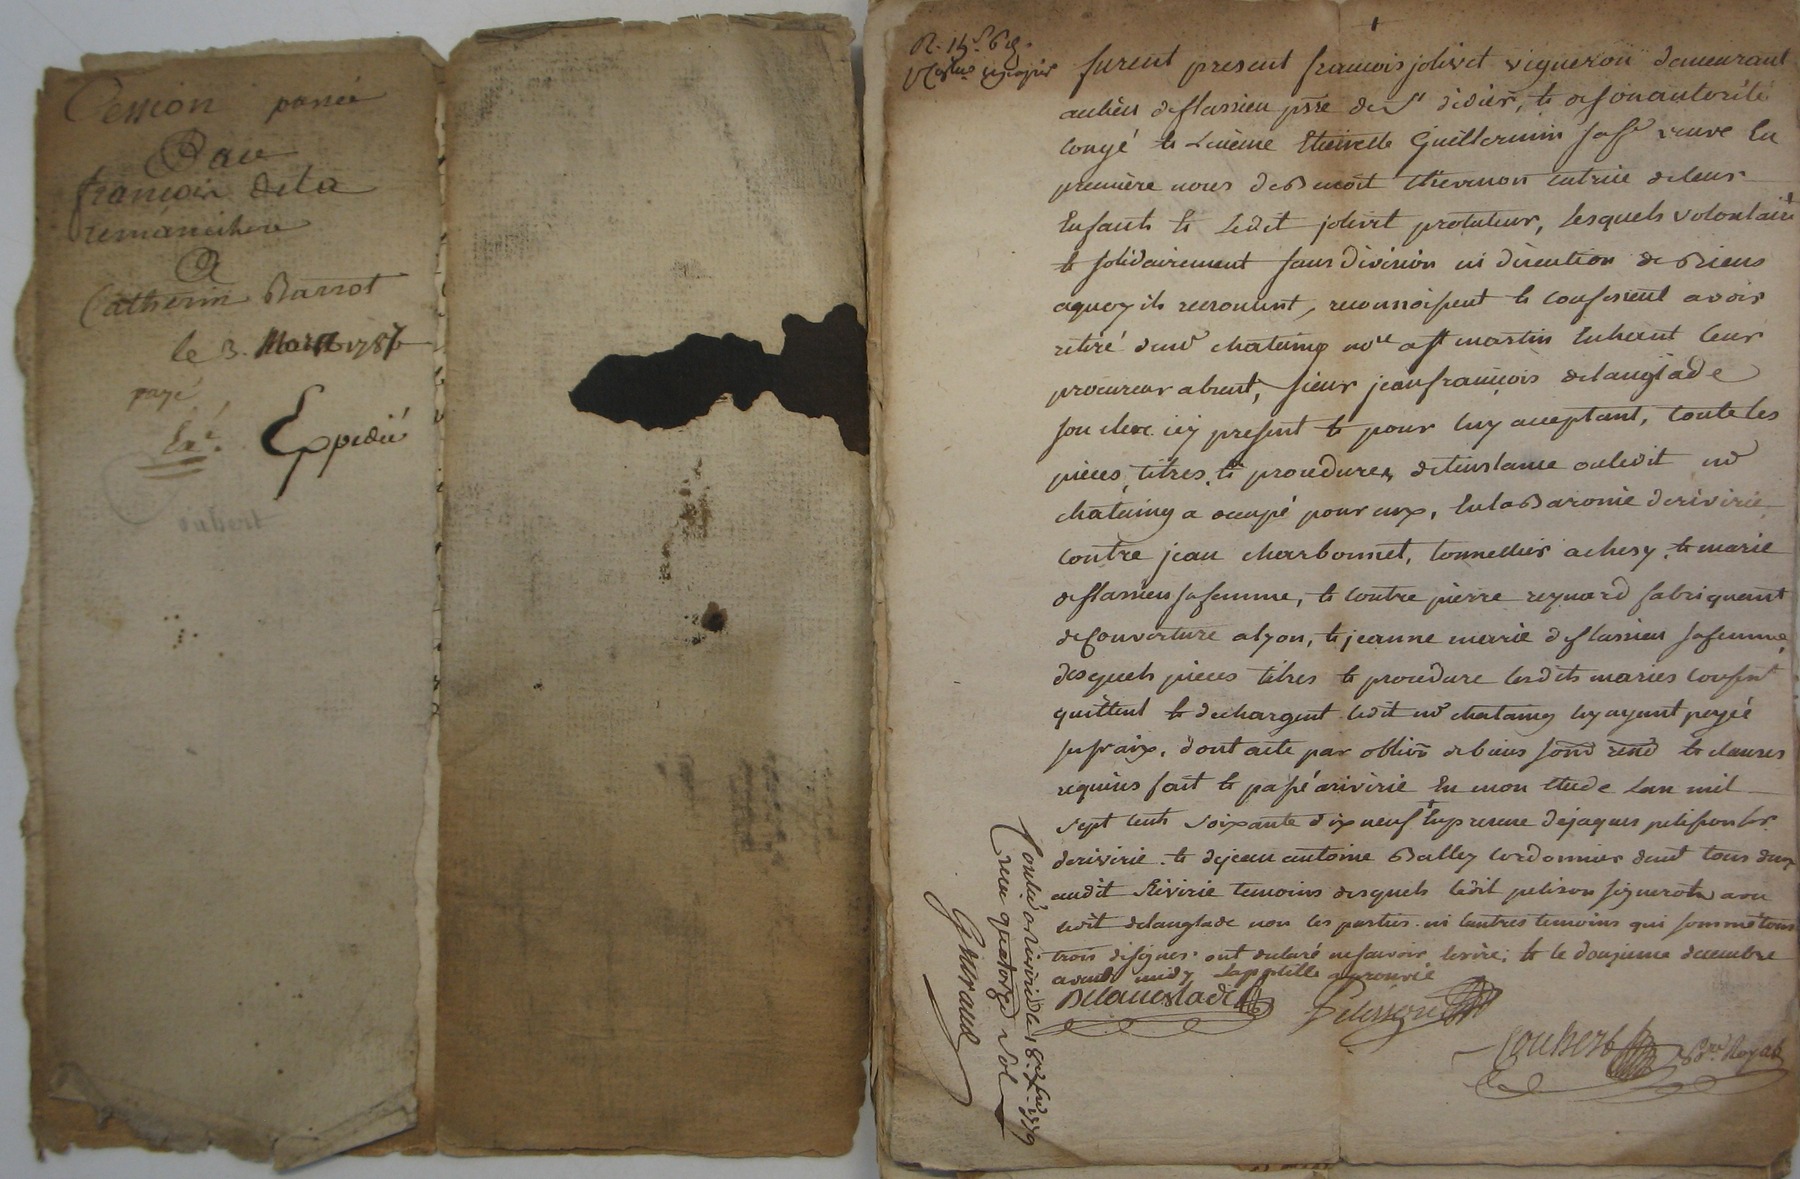 Cession passée
Par
françois dela
A
Catherin Barrot
le 3. Mars 1787
payé
Exé. Expedié
furent present francois jolivet vigneron demeurant
au lieu de flassieu psse de St didier, & de son autorité
congé & Etiennette Guillermin sa fe veuve En
première noces de Benoit thevenon tutrice de leurs
Enfants & ledit jolivet protuteur, lesquels volontairt
& solidairement sans division ni discution de Biens
aquoy ils renoncent, reconnoissent & confessent avoir
retiré de me chataing nre a st martin Enhaut leur
procureur absent, sieur jean françois delanglade
son clerc icy present & pour luy acceptant, toute les
pièces, titres, & procedures de linstance ou ledit me
chataing a occupé pour eux, En la Baronie de riverie
contre jean charbonnet, tonnellier a , & marie
de flassieu sa femme, & contre pierre reynard fabriquant
de couverture a lyon, & jeanne marie de flassieu sa femme,
desquels pieces titres & procedure lesdits maries
quittent & dechargent ledit me chataing luy ayant payé
ses fraix, dont acte par oblion de biens soms renons & clauses
requises fait & passé a riverie En mon Etude Lan mil
sept cents soixante dix neuf En presence de jaques pelisson
de riverie & de jean antoine Balley cordonnier dent tous deux
audit Riverie temoins desquels ledit pelisson signera avec
ledit delanglade non les parties ni lautre temoins qui sommés tous
trois de signer ont declaré ne savoir Ecrire, & le douzieme decembre
avant midy approuvée
Delanglade Pelisson
Coubert Nre Royal
Controlé a riverie le 18e Xbre 1779
reçu quatorze sol